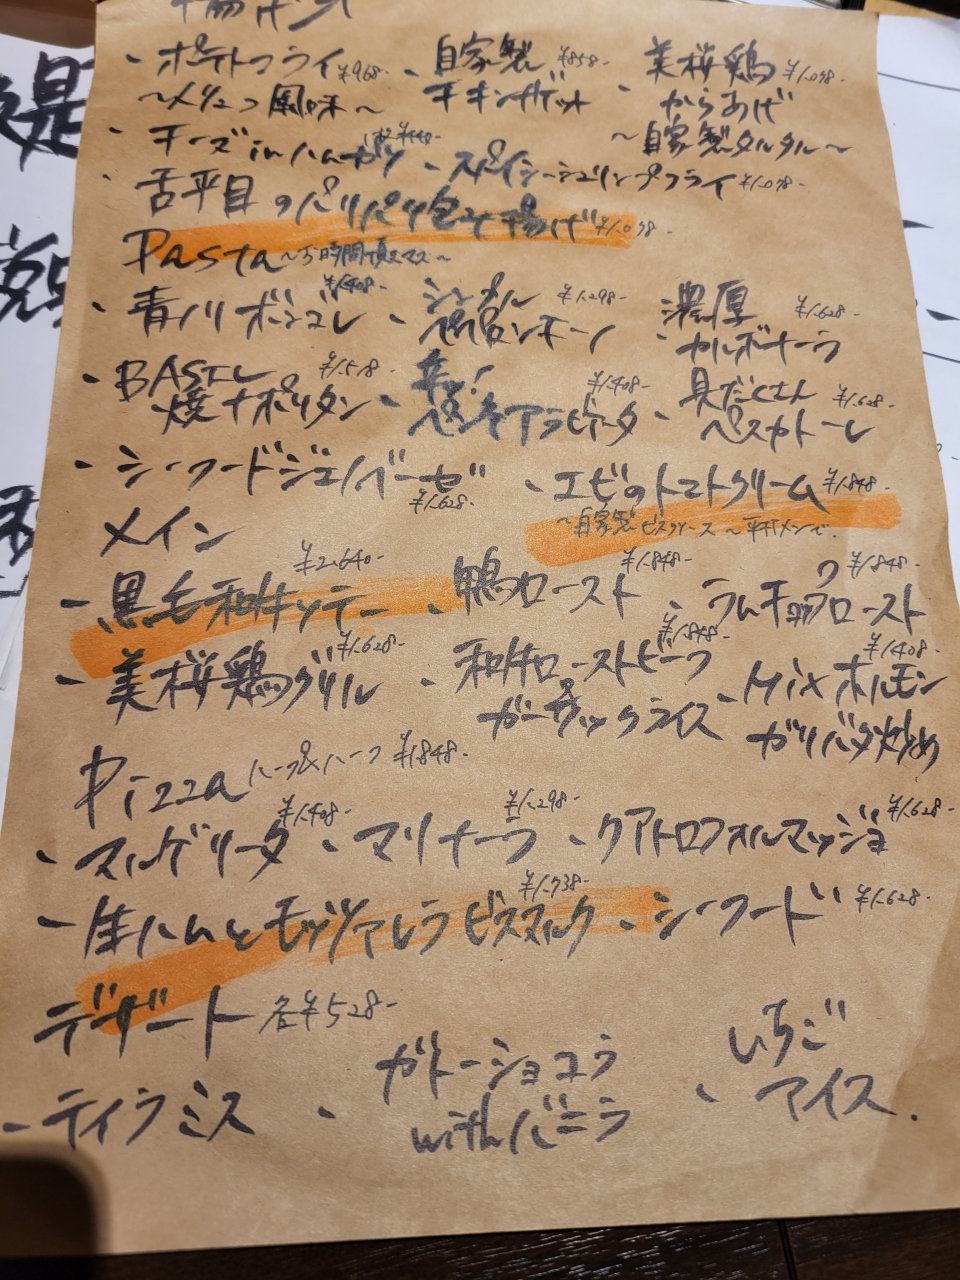 揚げ物
・ポテトフライ ¥968- ・自家製 ¥858- ・美桜鶏 ¥1.078-
風味～ チキンナゲット からあげ
・チーズinハムカツ ～自家製タルタル～
・スパイシーシュリンプフライ ¥1.078-
・舌平目のパリパリ包み揚げ ¥1.078-
Pasta ～お時間頂きマス～
・青川ボンゴレ ¥1.408- ・シンプル ¥1.298- ・濃厚 ¥1.628-
ペペロンチーノ カルボナーラ
・BASIL ¥1.518- ・辛ッ! ¥1.408- ・具だくさん ¥1.628-
焼ナポリタン ペンネアラビアータ ペスカトーレ
・シーフードジェノベーゼ ¥1.628- ・エビのトマトクリーム ¥1.848-
～自家製ビスクソース～平打メンで.
メイン
・黒毛和牛ソテー ¥2.640- ・鴨ロースト ¥1.848- ・ラムチョップロースト ¥1.848-
・美桜鶏グリル ¥1.628- ・和牛ローストビーフ ¥1.848- ・Mixホルモン ¥1.408-
ガーリックライス ガリバタ炒め
Pizza ハーフ&ハーフ ¥1.848-
・マルゲリータ ¥1.408- ・マリナーラ ¥1.298- ・クアトロフォルマッジョ ¥1.628-
・生ハムとモッツァレラビスマルク ¥1.738- ・シーフード ¥1.628-
デザート 各¥528-
・ティラミス ・ガトーショコラ ・いちご
withバニラ アイス.
是